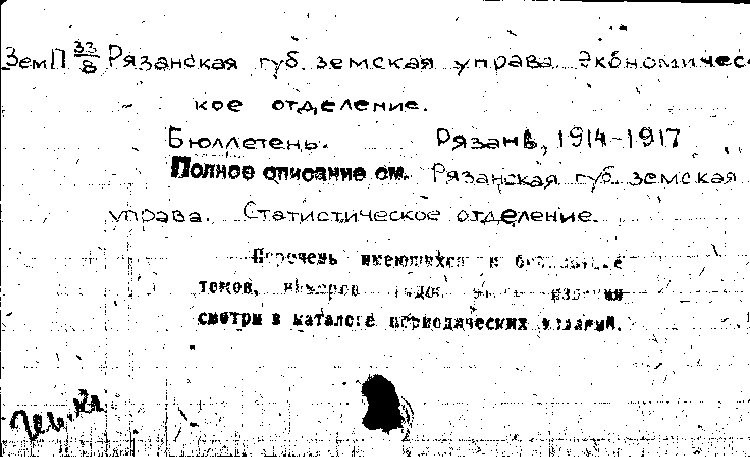 ЗемП 33/8 Рязанская губ. земская управа. Экономичес-
кое отделение.
Бюллетень. Рязань, 1914-1917
Полное описание см. Рязанская губ. земская
управа. Статистическое отделение.
Перечень имеющихся в
томов, номеров
смотри в каталоге периодических изданий.